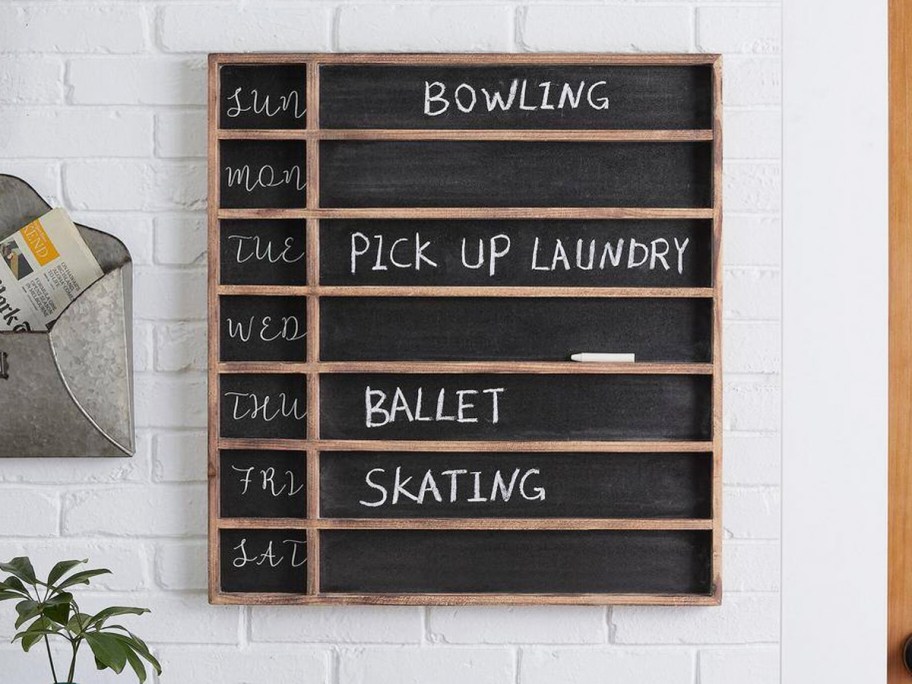 SUN BOWLING
MON
TUE PICK UP LAUNDRY
WED
THU BALLET
FRI SKATING
SAT